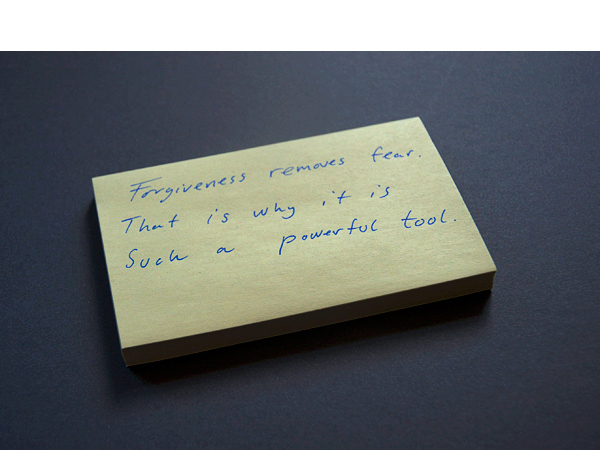 Forgiveness removes fear.
That is why it is
Such a powerful tool.